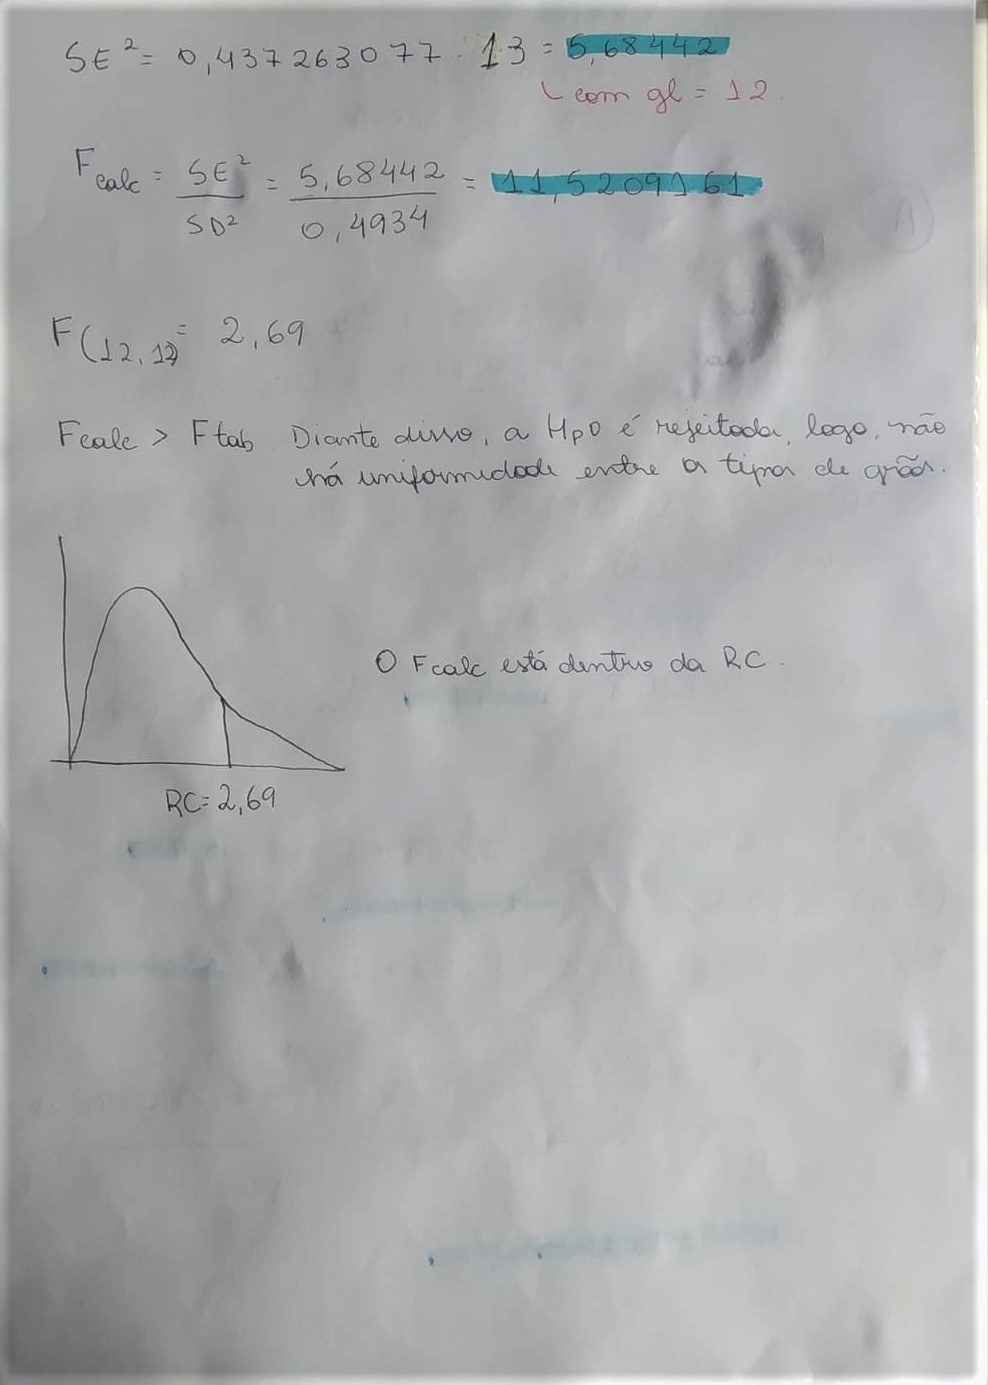 SE² = 0,437263077 · 13 = 5,68442
↳ com gl = 12.
Fcalc = SE²/SD² = 5,68442/0,4934 = 11,5209161
A
F(12,12) = 2,69
Fcalc > Ftab Diante disso, a Hp0 é rejeitada, logo, não
há uniformidade entre os tipos de grãos.
O Fcalc está dentro da RC.
RC = 2,69